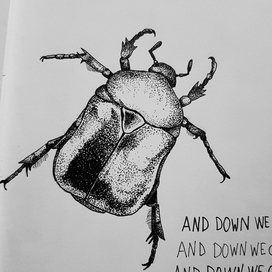 AND DOWN WE
AND DOWN WE C
AND DOWN WE C